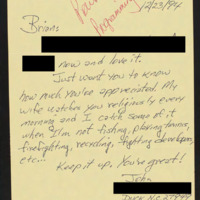 12/23/94
Brian:
now and love it.
Just want you to know
how much you're appreciated. My
wife watches you religiously every
morning and I catch some of it
when I'm not fishing, playing tennis,
firefighting, recording, fighting developers,
etc...
Keep it up. You're great!
John
Duck N.C. 27949